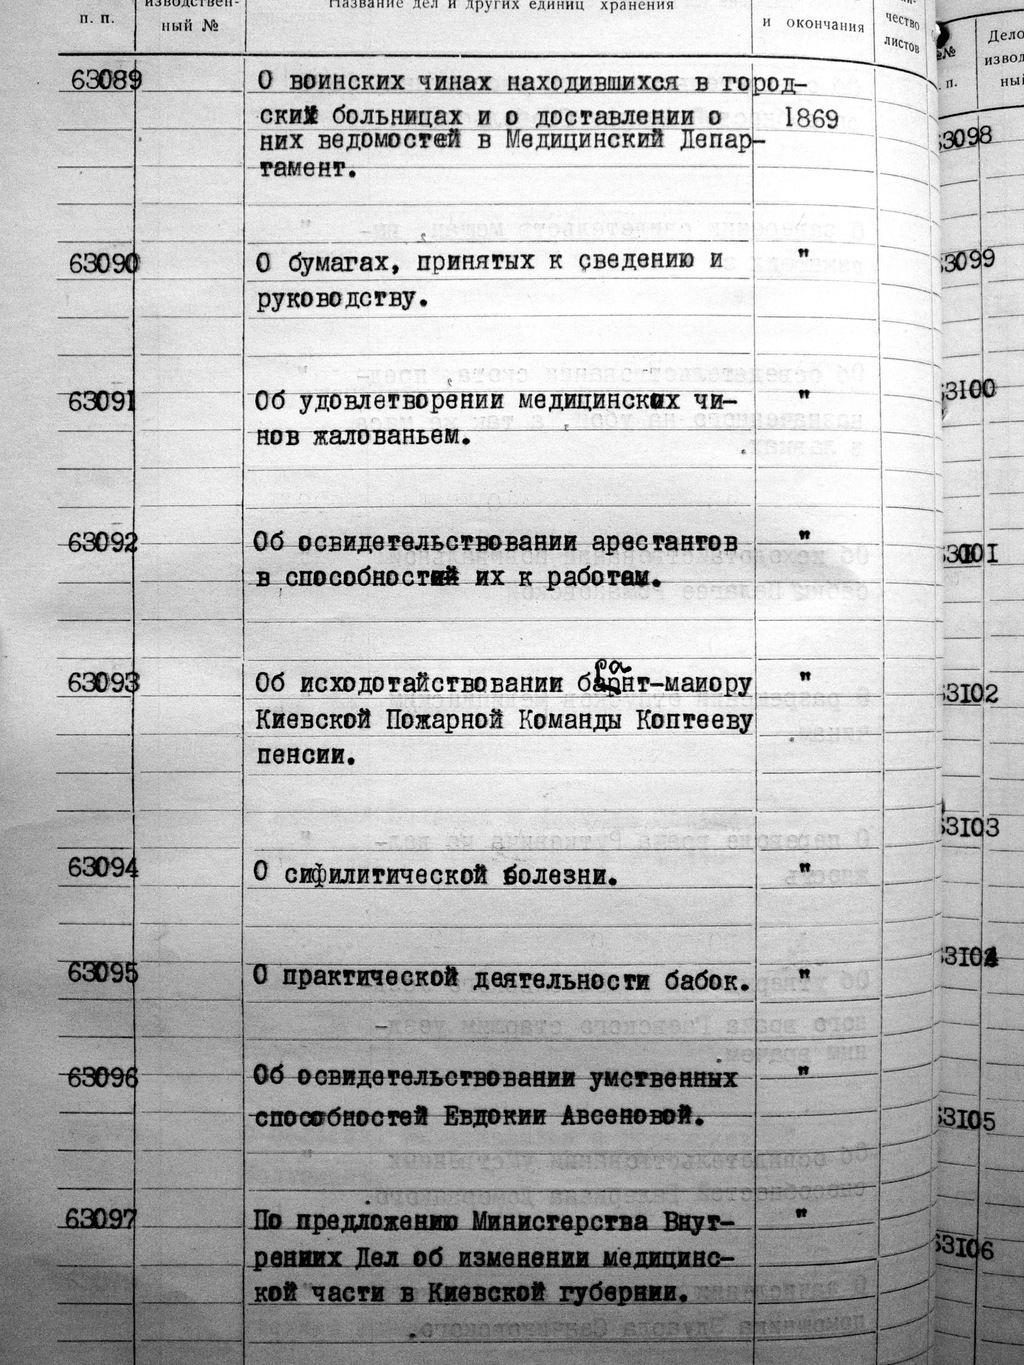 п. п.
изводствен-
ный №
Название дел и других единиц хранения
и окончания
чество
листов
63089 О воинских чинах находившихся в город-
ских больницах и о доставлении о 1869
них ведомостей в Медицинский Депар-
тамент.
63090 О бумагах, принятых к сведению и "
руководству.
63091 Об удовлетворении медицинских чи- "
нов жалованьем.
63092 Об освидетельствовании арестантов "
в способностей их к работам.
63093 Об исходотайствовании брант-маиору "
Киевской Пожарной Команды Коптееву
пенсии.
63094 О сифилитической болезни. "
63095 О практической деятельности бабок. "
63096 Об освидетельствовании умственных "
способностей Евдокии Авсеновой.
63097 По предложению Министерства Внут- "
ренних Дел об изменении медицинс-
кой части в Киевской губернии.
№
п.
Дело
извод
ный
63098
63099
63100
63102
63103
63104
63105
63106